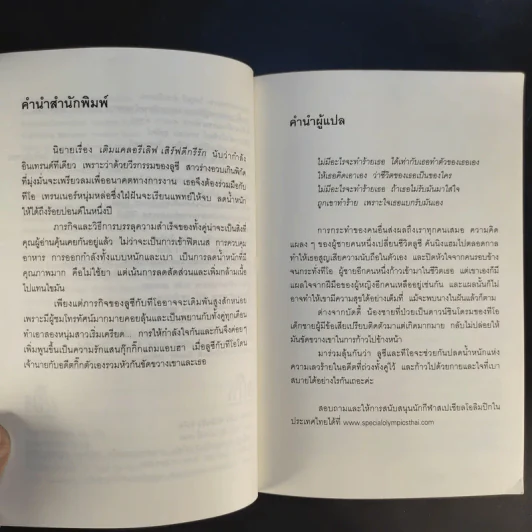 คำนำสำนักพิมพ์
นิยายเรื่อง เติมแคลอรีเลิฟ เสิร์ฟดีกรีรัก นับว่ากำลัง
อินเทรนด์ทีเดียว เพราะว่าด้วยวีรกรรมของลูซี สาวร่างอวบเกินพิกัด
ที่มุ่งมั่นจะเพรียวลมเพื่ออนาคตทางการงาน เธอจึงต้องร่วมมือกับ
ทีโอ เทรนเนอร์หนุ่มหล่อซึ่งใฝ่ฝันจะเรียนแพทย์ให้จบ ลดน้ำหนัก
ให้ได้ถึงร้อยปอนด์ในหนึ่งปี
ภารกิจและวิธีการบรรลุความสำเร็จของทั้งคู่น่าจะเป็นสิ่งที่
คุณผู้อ่านคุ้นเคยกันอยู่แล้ว ไม่ว่าจะเป็นการเข้าฟิตเนส การควบคุม
อาหาร การออกกำลังทั้งแบบหนักและเบา เป็นการลดน้ำหนักที่มี
คุณภาพมาก คือไม่ใช้ยา แต่เน้นการลดสัดส่วนและเพิ่มกล้ามเนื้อ
ไปแทนไขมัน
เพียงแต่ภารกิจของลูซีกับทีโออาจจะเดิมพันสูงสักหน่อย
เพราะมีผู้ชมโทรทัศน์มากมายคอยลุ้นและเป็นพยานกับทั้งคู่ทุกเดือน
ทำเอาสองหนุ่มสาวเริ่มเครียด... การให้กำลังใจกันและกันจึงค่อยๆ
เพิ่มพูนขึ้นเป็นความรักแสนกุ๊กกิ๊กแถมแอบฮา เมื่อลูซีกับทีโอโดน
เจ้านายกับอดีตกิ๊กตัวเองรวมหัวกันขัดขวางเขาและเธอ
คำนำผู้แปล
ไม่มีอะไรจะทำร้ายเธอ ได้เท่ากับเธอทำตัวของเธอเอง
ให้เธอคิดเอาเอง ว่าชีวิตของเธอเป็นของใคร
ไม่มีอะไรจะทำร้ายเธอ ถ้าเธอไม่รับมันมาใส่ใจ
ถูกเขาทำร้าย เพราะใจเธอแบกรับมันเอง
การกระทำของคนอื่นส่งผลถึงเราทุกคนเสมอ ความคิด
แผลง ๆ ของผู้ชายคนหนึ่งเปลี่ยนชีวิตลูซี คันนิงแฮมไปตลอดกาล
ทำให้เธอสูญเสียความนับถือในตัวเอง และปิดหัวใจจากคนรอบข้าง
จนกระทั่งทีโอ ผู้ชายอีกคนหนึ่งก้าวเข้ามาในชีวิตเธอ แต่เขาเองก็มี
แผลใจจากฝีมือของผู้หญิงอีกคนเหลืออยู่เช่นกัน และแผลนั้นก็ไม่
อาจทำให้เขามีความสุขได้อย่างเต็มที่ แม้จะพบนางในฝันแล้วก็ตาม
ต่างจากบัดดี้ น้องชายที่ป่วยเป็นดาวน์ซินโดรมของทีโอ
เด็กชายผู้มีข้อเสียเปรียบติดตัวมาแต่เกิดมากมาย กลับไม่ปล่อยให้
มันขัดขวางเขาในการก้าวไปข้างหน้า
มาร่วมลุ้นกันว่า ลูซีและทีโอจะช่วยกันปลดน้ำหนักแห่ง
ความเลวร้ายในอดีตที่ถ่วงทั้งคู่ไว้ และก้าวไปด้วยกายและใจที่เบา
สบายได้อย่างไรกันเถอะค่ะ
สอบถามและให้การสนับสนุนนักกีฬาสเปเชียลโอลิมปิกใน
ประเทศไทยได้ที่ www.specialolympicsthai.com